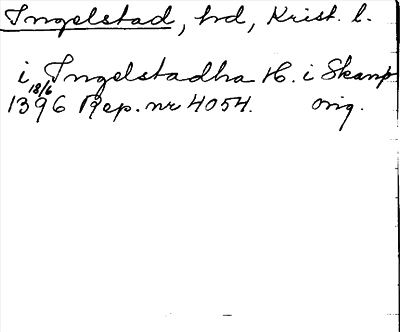 Ingelstad, hd, Krist. l.
i Ingelstadha H. i Skanø
18/6
1396 Rep. nr 4054. orig.